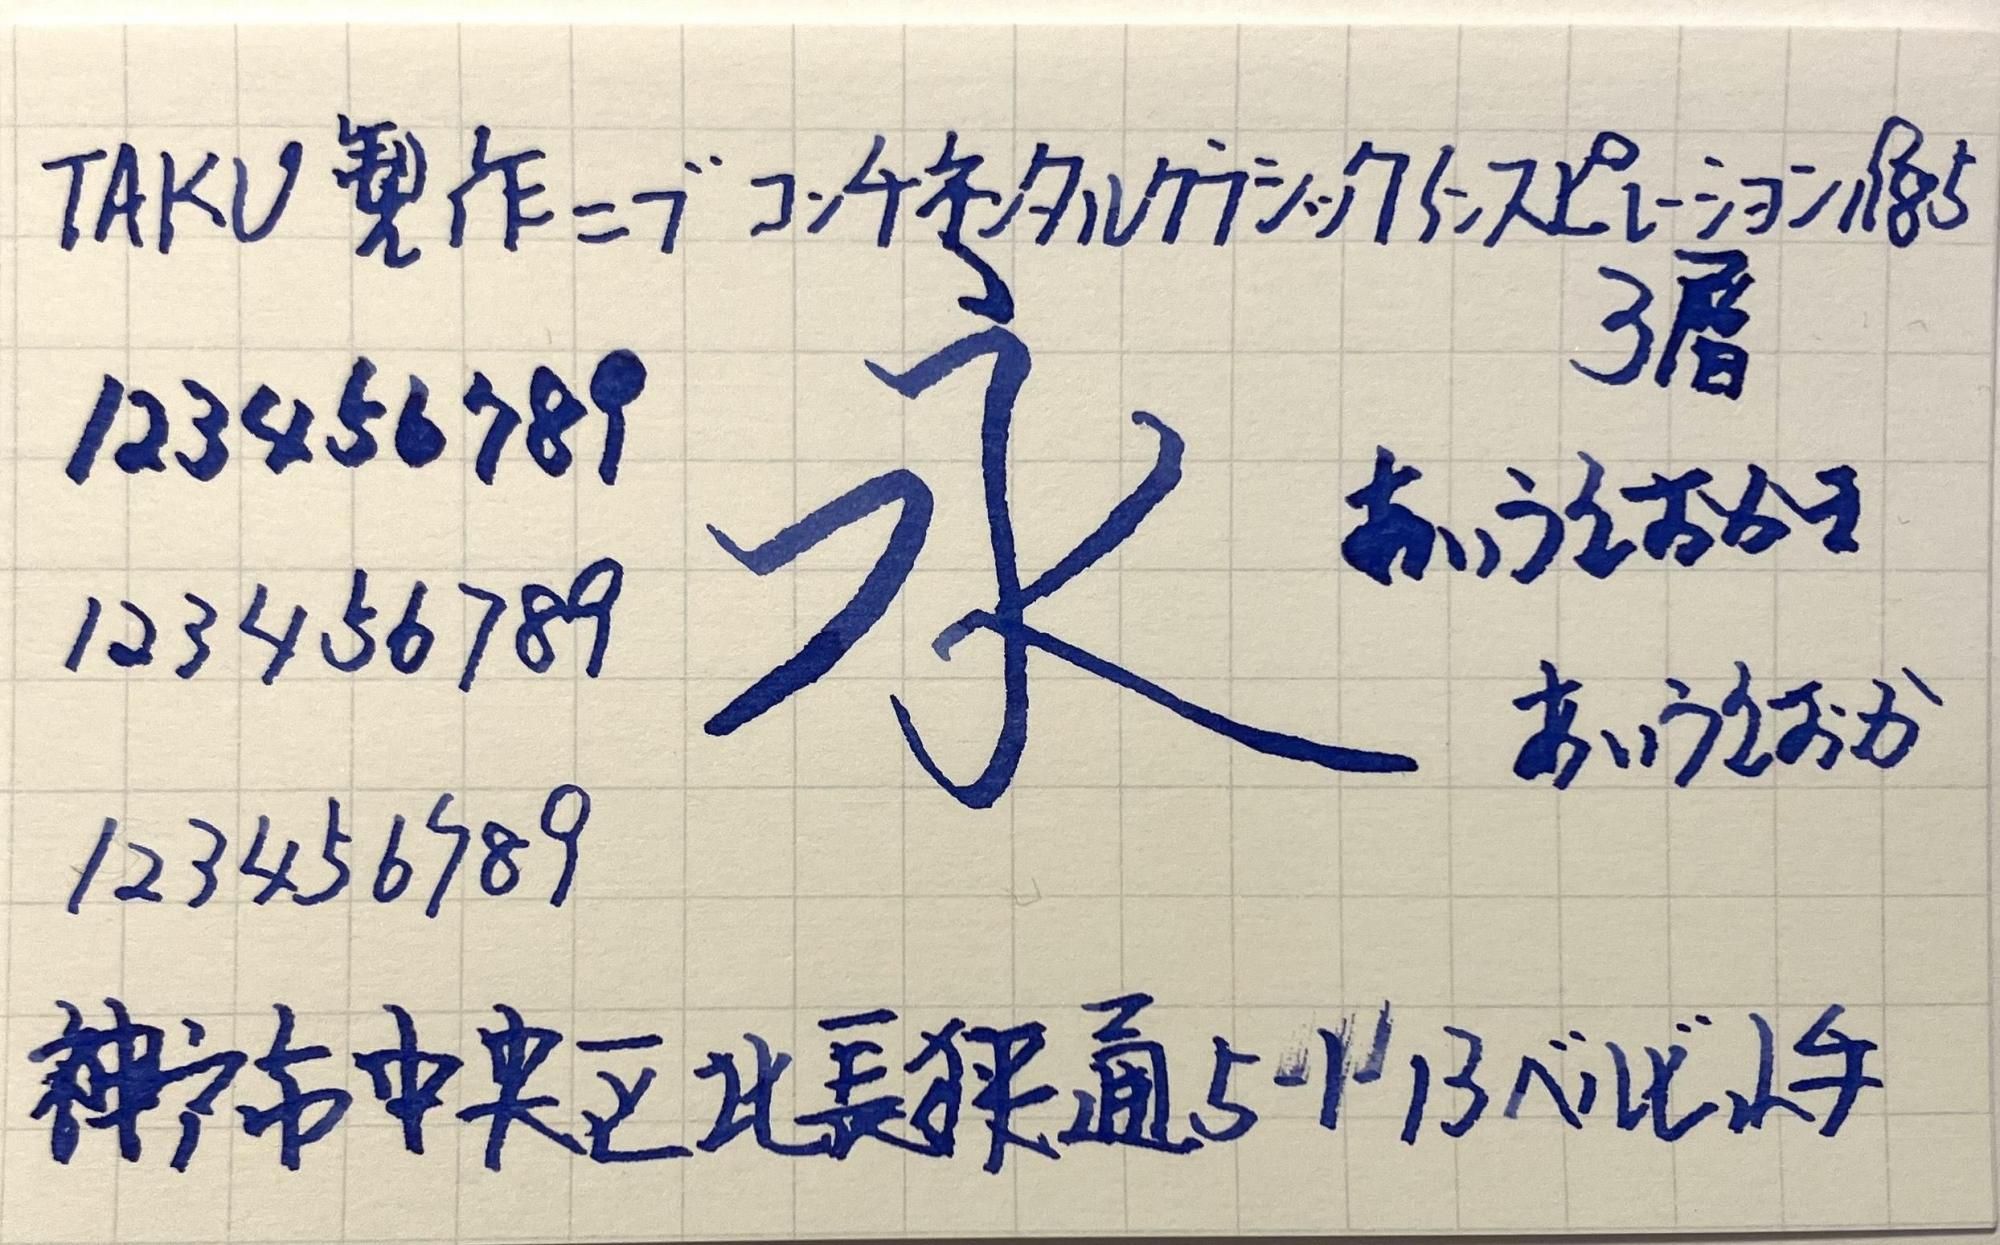 TAKU製作ニブ コンチネンタルクラシックインスピレーション185
3層
永
123456789
あいうえおかき
123456789
あいうえおか
123456789
神戸市中央区北長狭通5-1-13ベルビ山手